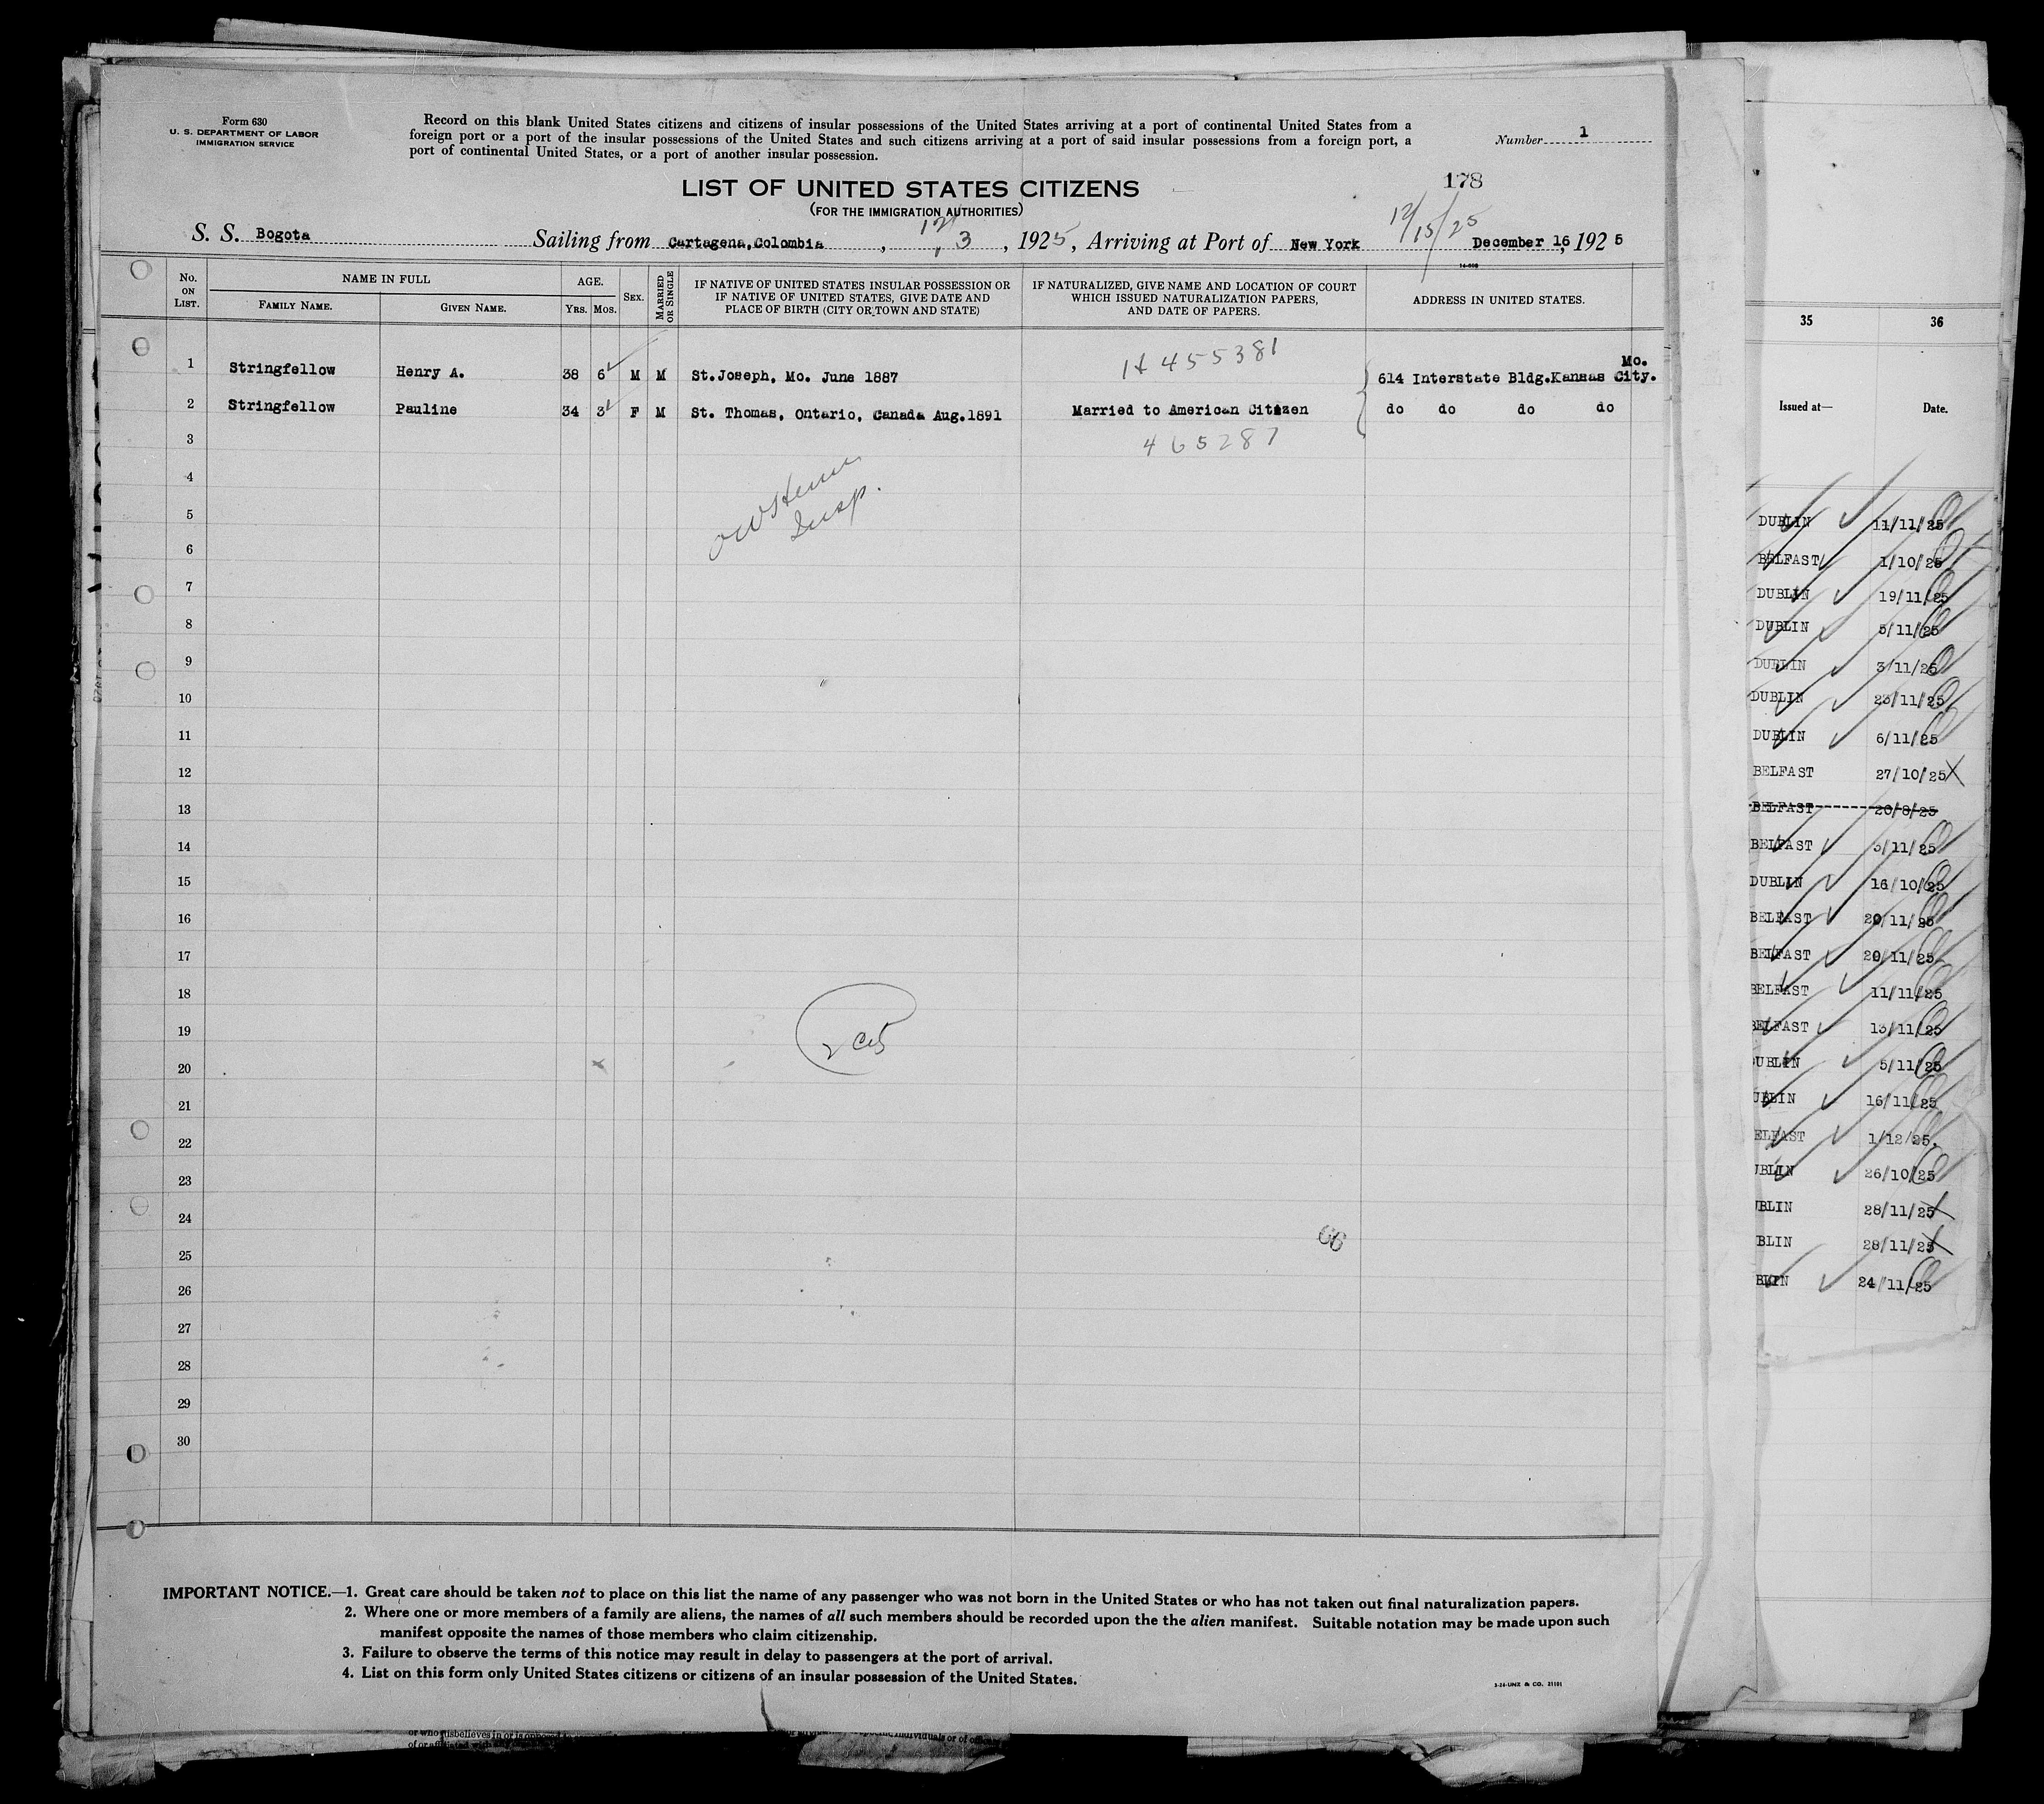 Form 630
U. S. DEPARTMENT OF LABOR
IMMIGRATION SERVICE
Record on this blank United States citizens and citizens of insular possessions of the United States arriving at a port of continental United States from a
foreign port or a port of the insular possessions of the United States and such citizens arriving at a port of said insular possessions from a foreign port, a
port of continental United States, or a port of another insular possession.
Number 1
LIST OF UNITED STATES CITIZENS
(FOR THE IMMIGRATION AUTHORITIES)
178
12/15/25
S. S. Bogota Sailing from Cartagena,Colombia, 12/3, 1925, Arriving at Port of New York December 16, 1925
No. ON LIST.
NAME IN FULL
FAMILY NAME. GIVEN NAME.
AGE.
YRS. MOS.
SEX.
MARRIED OR SINGLE
IF NATIVE OF UNITED STATES INSULAR POSSESSION OR
IF NATIVE OF UNITED STATES, GIVE DATE AND
PLACE OF BIRTH (CITY OR TOWN AND STATE)
IF NATURALIZED, GIVE NAME AND LOCATION OF COURT
WHICH ISSUED NATURALIZATION PAPERS,
AND DATE OF PAPERS.
ADDRESS IN UNITED STATES.
455381
Mo.
1 Stringfellow Henry A. 38 6 M M St.Joseph, Mo. June 1887 614 Interstate Bldg.Kansas City.
2 Stringfellow Pauline 34 3 F M St. Thomas, Ontario, Canada Aug.1891 Married to American Citizen do do do do
3 465287
4
5
Insp.
6
7
8
9
10
11
12
13
14
15
16
17
18
19
20
21
22
23
24
25
26
27
28
29
30
66
IMPORTANT NOTICE.—1. Great care should be taken not to place on this list the name of any passenger who was not born in the United States or who has not taken out final naturalization papers.
2. Where one or more members of a family are aliens, the names of all such members should be recorded upon the the alien manifest. Suitable notation may be made upon such
manifest opposite the names of those members who claim citizenship.
3. Failure to observe the terms of this notice may result in delay to passengers at the port of arrival.
4. List on this form only United States citizens or citizens of an insular possession of the United States.
3-24-UNZ & CO. 21101
35 36
Issued at— Date.
DUBLIN 11/11/25
BELFAST 1/10/25
DUBLIN 19/11/25
DUBLIN 5/11/25
DUBLIN 3/11/25
DUBLIN 23/11/25
DUBLIN 6/11/25
BELFAST 27/10/25
BELFAST 20/8/25
BELFAST 3/11/25
DUBLIN 16/10/25
BELFAST 20/11/25
BELFAST 20/11/25
BELFAST 11/11/25
BELFAST 13/11/25
UBLIN 5/11/25
UBLIN 16/11/25
ELFAST 1/12/25.
UBLIN 26/10/25
UBLIN 28/11/25
BLIN 28/11/25
BLIN 24/11/25